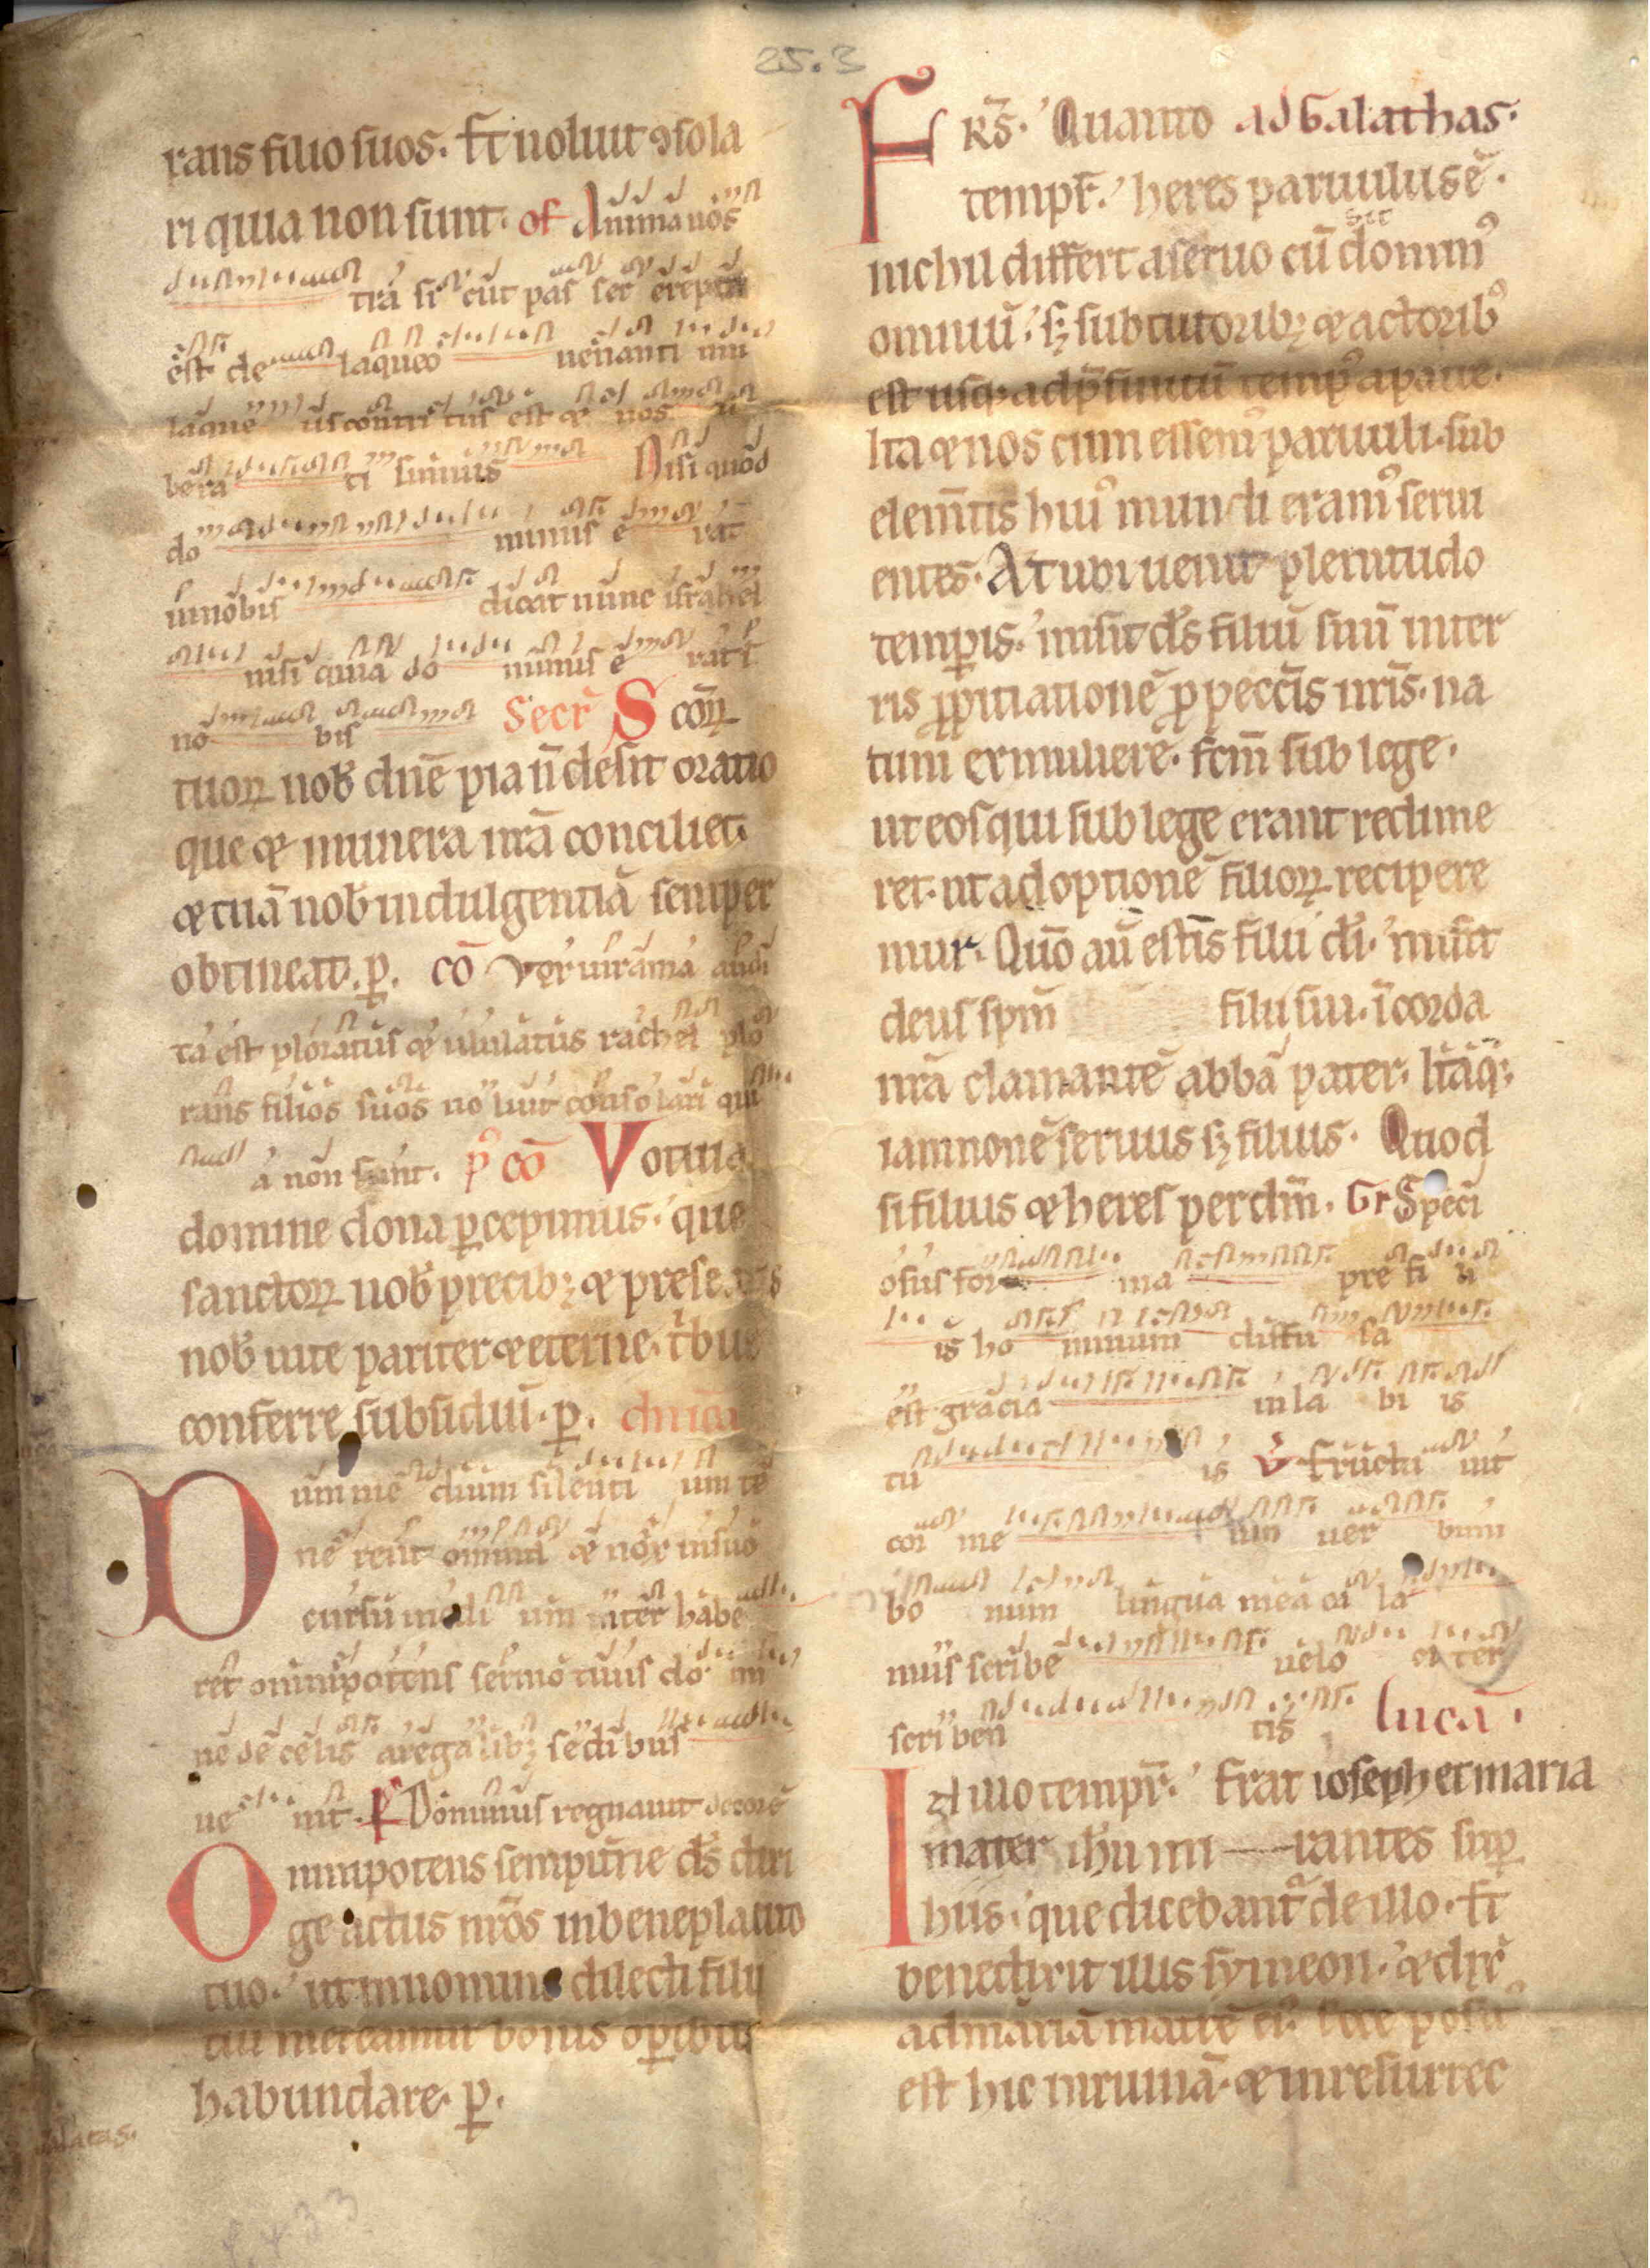 25.3
rans filio suos. Et noluit ꝯsola
ri quia non sunt. of Anima nos
tra si cut pas ser erepta
est de laqueo uenanti um
laque us contri tus est & nos li
bera ti sumus Nisi quod
do minus e rat
in nobis dicat nunc israhel
nisi quia do minus e rat ī
no bis Secr̄ S cōꝝ
tuoꝝ nob̄ dn̄e pia n̄ desit oratio
que & munera nr̄a conciliet.
& tuā nob̄ indulgentiā semper
obtineat. ꝑ. cō Vox in rama audi
ta est ploratus & ululatus rachel plo
rans filios suos no luit consolari qui
a non sunt. p⁹ cō Votiua
domine dona ꝑcepimus. que
sanctoꝝ nob̄ precib; & prese
nob̄ uite pariter & eterne. t̄bue
conferre subsidiū. ꝑ. dn̄ica
Dum me dium silenti um te
ne rent omnia & nox in suo
cursu medi um iter habe
ret omnipotens sermo tuus do mi
ne de celis a regalib; sedibus
ue nit. p̄s Dominus regnauit decorē
Omnipotens sempit̄ne ds̄ diri
ge actus nr̄os in beneplacito
tuo. ut in nomine dilecti filii
tui mereamur bonis oꝑibus
habundare. ꝑ.
Frs̄. Quanto ad Galathas.
tempr̄. heres paruulus ē.
nichil differt a seruo cū sit domin⁹
omniū. s; sub tutorib; & actorib⁹
est usq; ad p̄finitū temp⁹ a patre.
Ita & nos cum essem⁹ paruuli. sub
elem̄tis hui⁹ mundi eram⁹ serui
entes. At ubi uenit plenitudo
temꝑis. misit ds̄ filiū suū in ter
ris ꝓpitiationē ꝓ pecc̄is nr̄is. na
tum ex muliere. fc̄m sub lege.
ut eos qui sub lege erant redime
ret. ut adoptionē filioꝝ recipere
mur. Quō aū estis filii di. misit
deus spm̄ filii sui. ī corda
nr̄a clamantē abba pater. Itaq;
iam non ē seruus s; filius. Quod
si filius & heres per dm̄. Gr Speci
osus for ma pre fi li
is ho minum diffu sa
est gracia in la bi is
tu is v̄ Eructa uit
cor me um uer bum
bo num lingua mea ca la
mus scribe uelo ci ter
scriben tis Lucā.
In illo tempr̄. Erat ioseph et maria
mater ih̄u mi rantes suꝑ
hiis. que dicebant᷑ de illo. Et
benedixit illis symeon. & dix̄
ad mariā matrē ei⁹. Ecce posit⁹
est hic in ruinā. & in resurrec